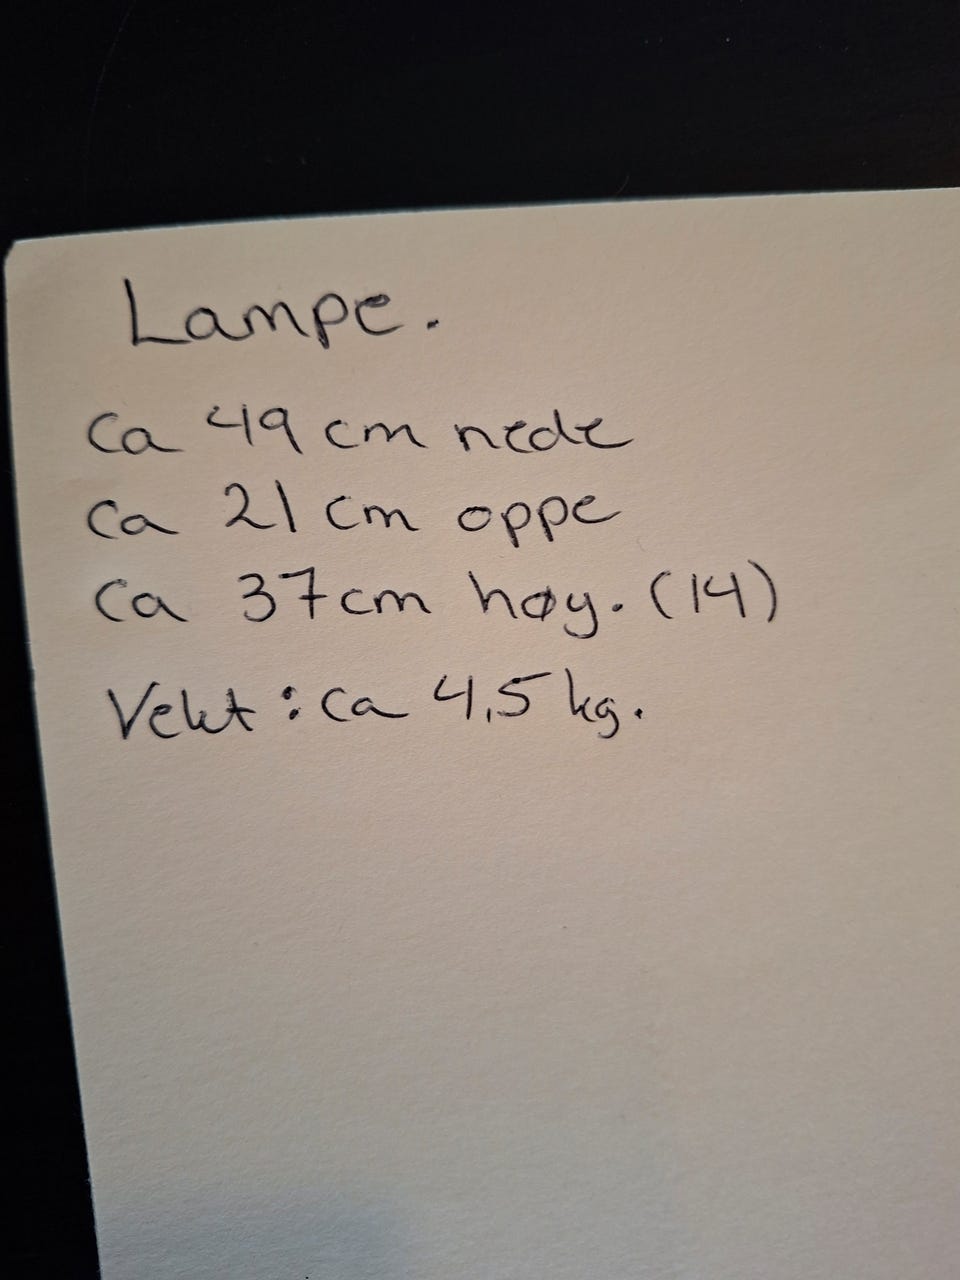 Lampe.
Ca 49 cm nede
Ca 21 cm oppe
Ca 37cm høy. (14)
Vekt: ca 4,5 kg.